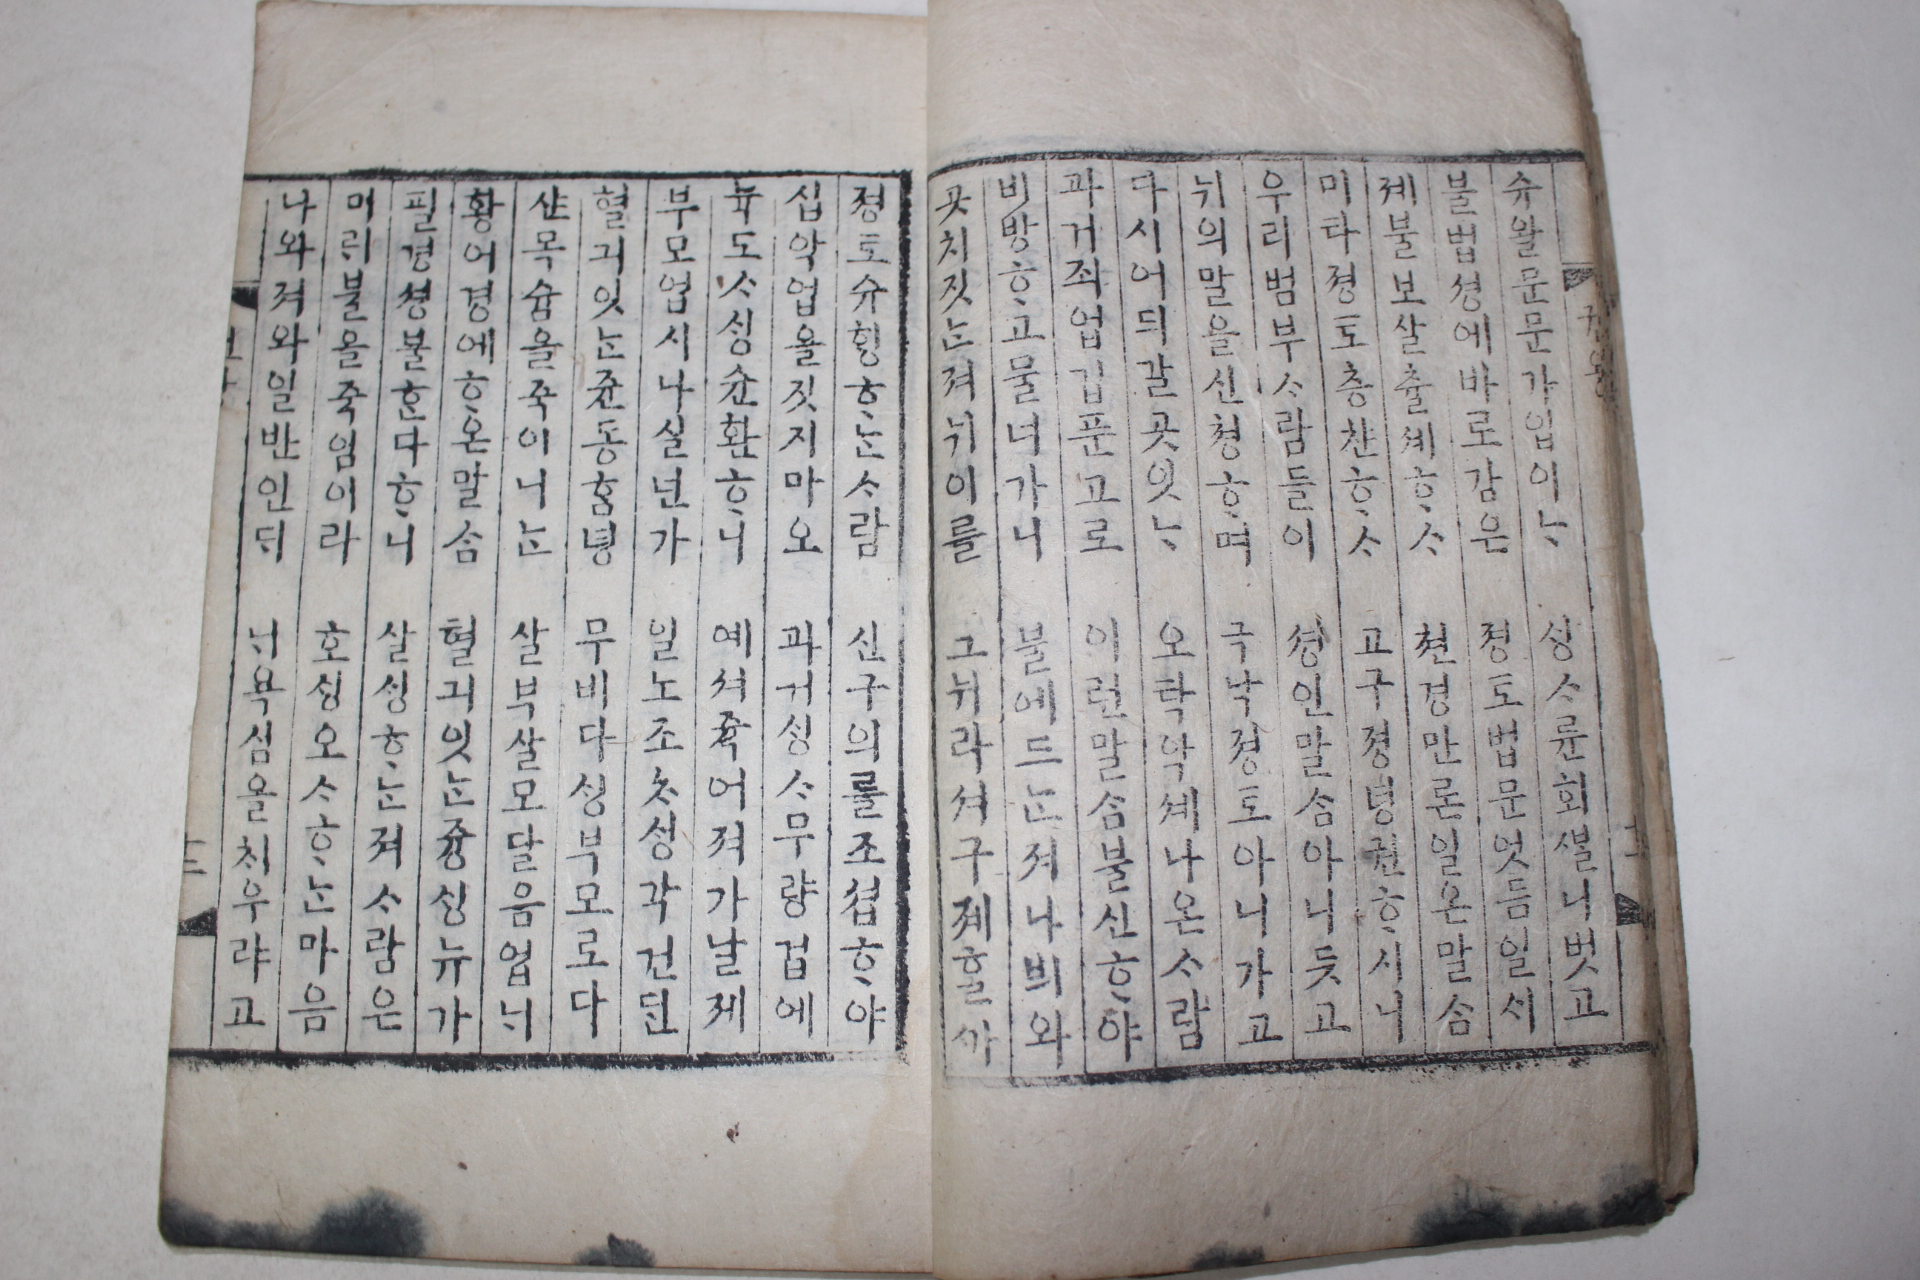 슈왈문문가입이ᄂᆞ ᄉᆡᆼᄉᆞ륜회ᄲᆞᆯ니벗고
불법셩에바로감은 졍토법문엇듬일ᄉᆡ
졔불보살츌셰ᄒᆞᄉᆞ 쳔경만론일온말ᄉᆞᆷ
미타졍토층찬ᄒᆞᄉᆞ 고구졍녕권ᄒᆞ시니
우리범부ᄉᆞ람들이 셩인말ᄉᆞᆷ아니듯고
뉘의말을신쳥ᄒᆞ며 극낙졍토아니가고
다시어듸갈곳잇ᄂᆞ 오탁악셰나온ᄉᆞ람
과거죄업깁푼고로 이런말ᄉᆞᆷ불신ᄒᆞ야
비방ᄒᆞ고물너가니 불에드ᄂᆞᆫ져나븨와
곳치짓ᄂᆞᆫ져뉘이를 그뉘라셔구졔ᄒᆞᆯ가
졍토슈ᄒᆡᆼᄒᆞᄂᆞᆫᄉᆞ람 신구의를조섭ᄒᆞ야
십악업을짓지마오 과거ᄉᆡᆼᄉᆞ무량겁에
뉵도ᄉᆞᄉᆡᆼ슌환ᄒᆞ니 예셔쥭어져가날졔
부모업시나실넌가 일노조ᄎᆞᄉᆡᆼ각건ᄃᆡᆫ
혈긔잇ᄂᆞᆫ쥰동ᄒᆞᆷ녕 무비다ᄉᆡᆼ부모로다
산목숨을죽이ᄂᆞᆫ 살부살모달음업ᄂᆡ
황어경에ᄒᆞ온말ᄉᆞᆷ 혈긔잇ᄂᆞᆫ즁ᄉᆡᆼ뉴가
필경셩불ᄒᆞᆫ다ᄒᆞ니 살ᄉᆡᆼᄒᆞᄂᆞᆫ져ᄉᆞ람은
미ᄅᆡ불을죽임이라 호ᄉᆡᆼ오ᄉᆞᄒᆞᄂᆞᆫ마음
나와져와일반인ᄃᆡ ᄂᆡ욕심을ᄎᆡ우랴고